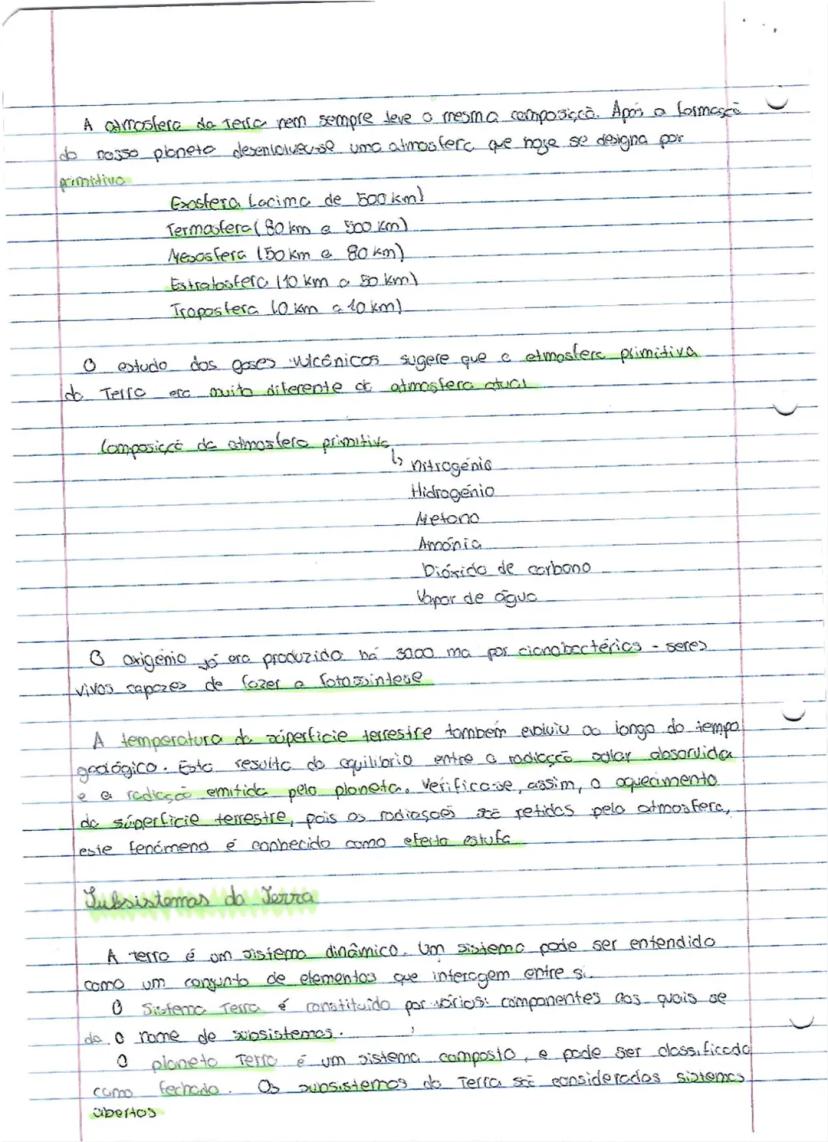 A atmosfera da Terra nem sempre teve a mesma composição. Após a formação
do nosso planeta desenvolveu-se uma atmosfera que hoje se designa por
primitiva
Exosfera (acima de 500 km)
Termosfera (80 km a 500 km)
Mesosfera (50 km a 80 km)
Estratosfera (10 km a 50 km)
Troposfera (0 km a 10 km)
O estudo dos gases vulcânicos sugere que a atmosfera primitiva
da Terra era muito diferente da atmosfera atual
Composição da atmosfera primitiva
↳ Nitrogénio
Hidrogénio
Metano
Amónia
Dióxido de carbono
Vapor de água
O oxigénio já era produzido há 3000 ma por cianobactérias - seres
vivos capazes de fazer a fotossíntese
A temperatura da súperficie terrestre também evoluiu ao longo do tempo
geológico. Esta resulta do equilibrio entre a radiação solar absorvida
e a radiação emitida pelo planeta. Verifica-se, assim, o aquecimento
da súperficie terrestre, pois as radiações são retidas pela atmosfera,
este fenómeno é conhecido como efeito estufa
Subsistemas da Terra
A Terra é um sistema dinâmico. Um sistema pode ser entendido
como um conjunto de elementos que interagem entre si.
O Sistema Terra é constituído por vários componentes aos quais se
da o nome de subsistemas.
O planeta Terra é um sistema composto, e pode ser classificado
como fechado. Os subsistemas da Terra são considerados sistemas
abertos